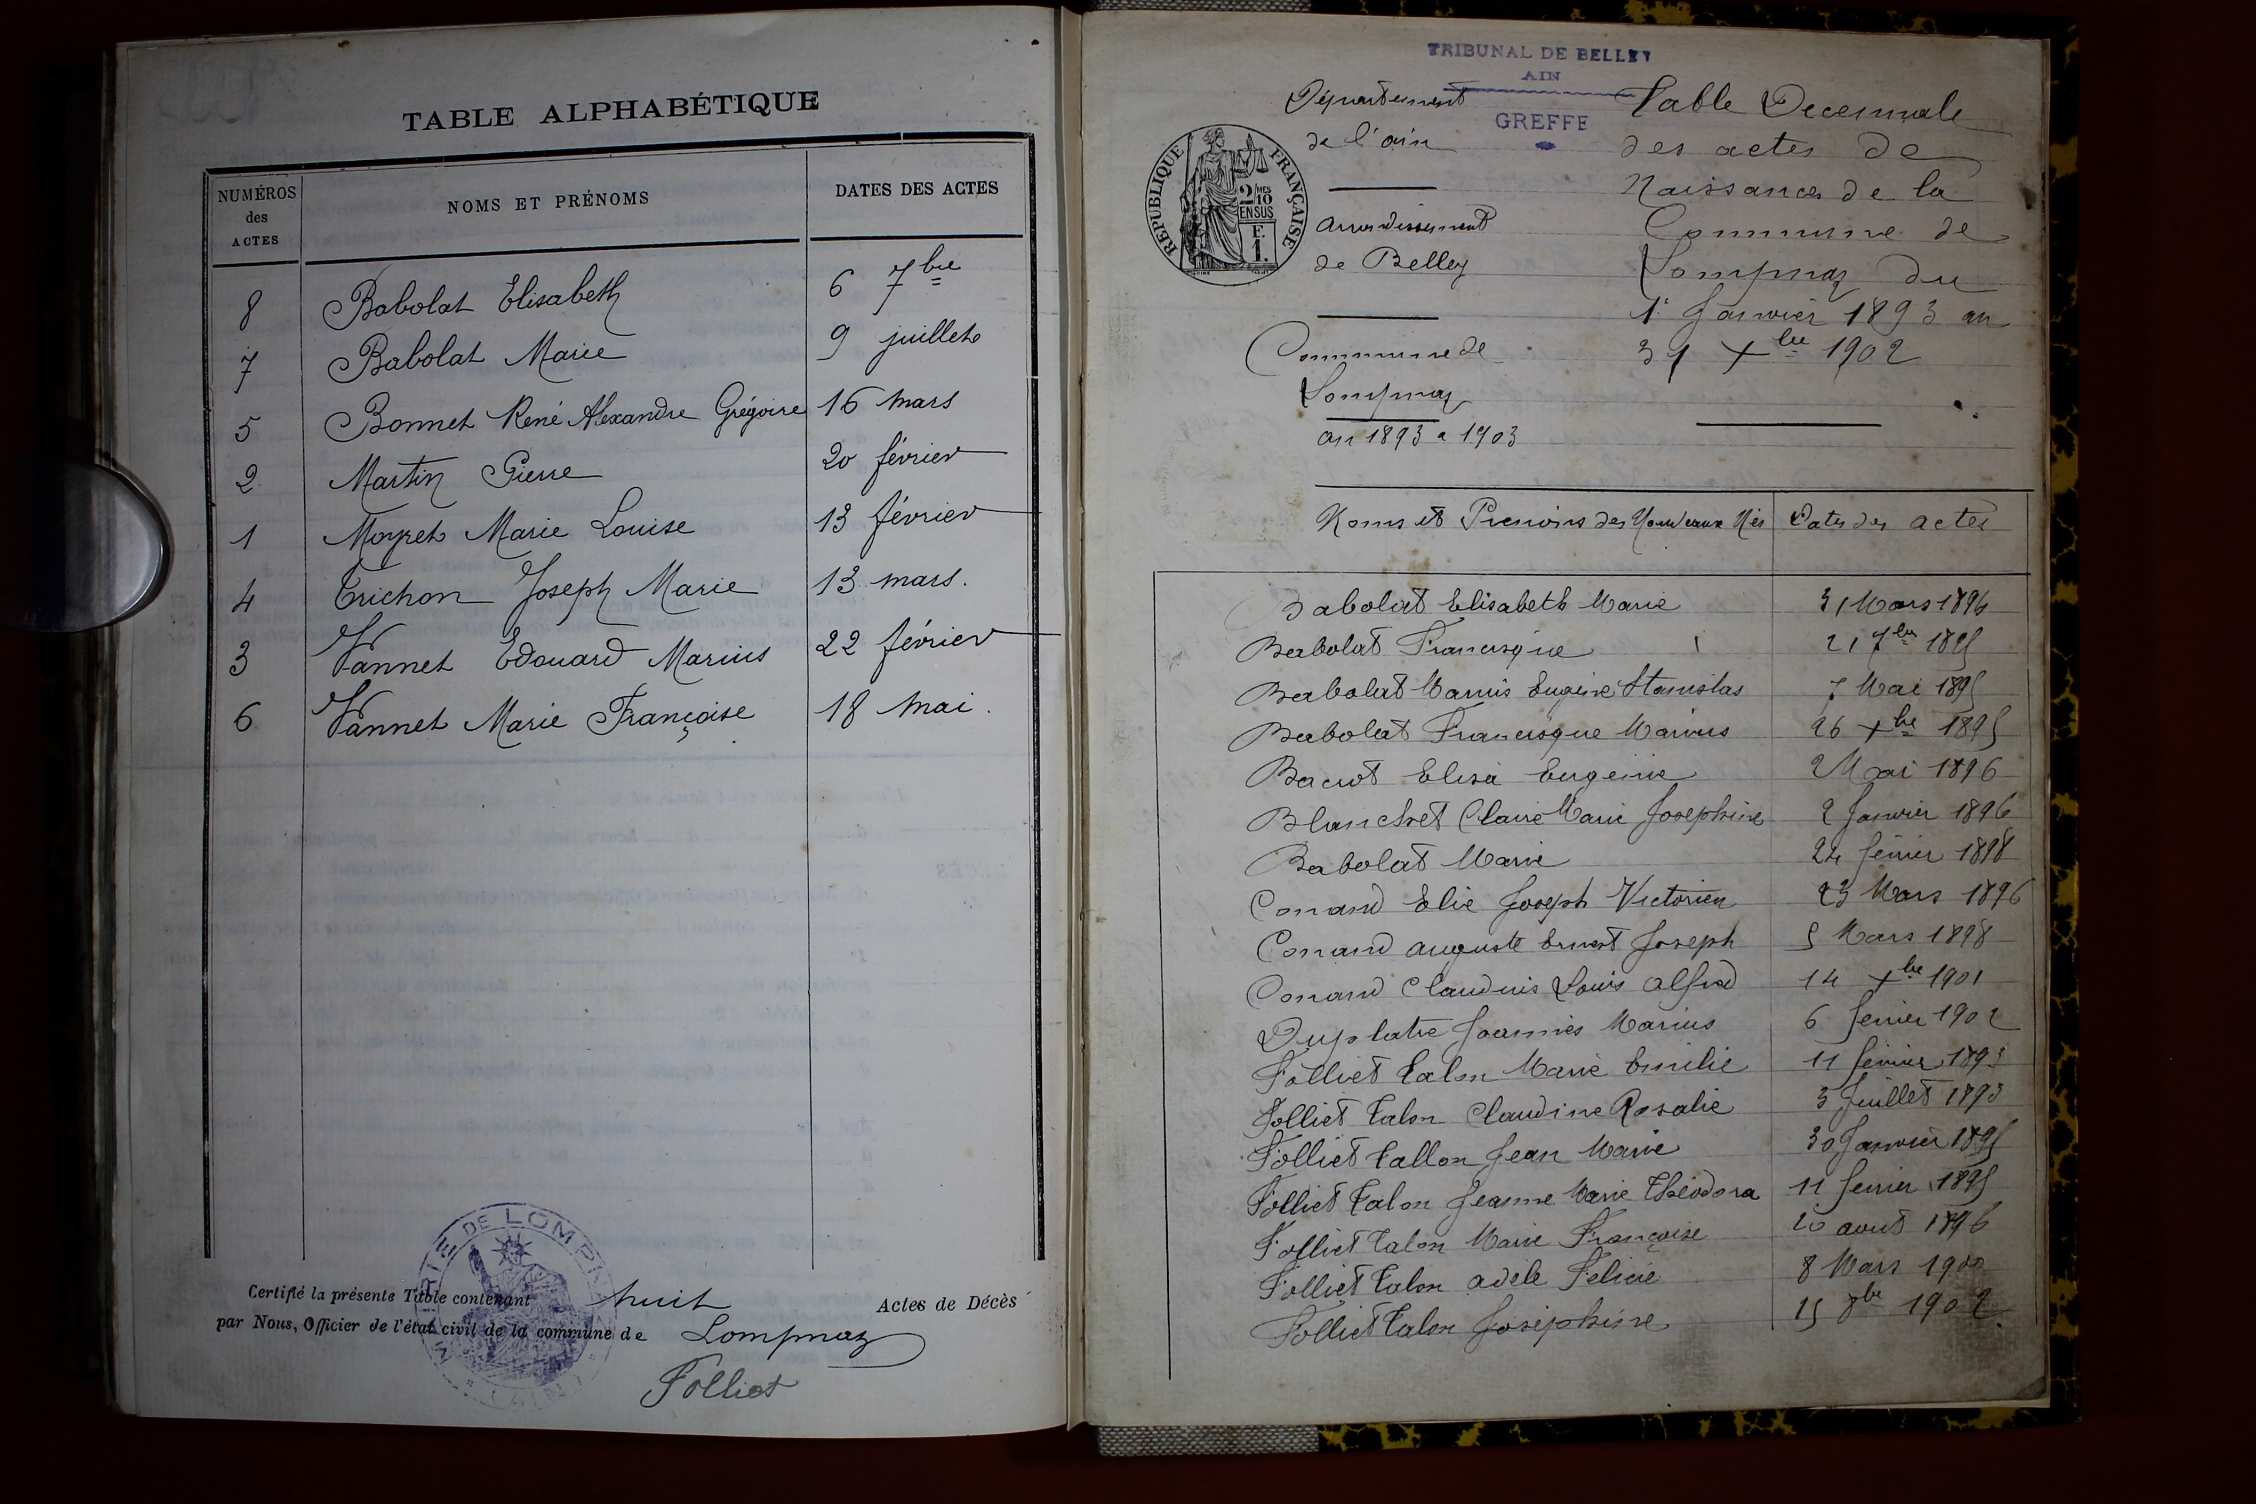 TABLE ALPHABÉTIQUE
NUMÉROS des ACTES NOMS ET PRÉNOMS DATES DES ACTES
8 Babolat Elisabeth 6 7bre
7 Babolat Marie 9 juillet
5 Bonnet René Alexandre Grégoire 16 mars
2 Martin Pierre 20 février
1 Moyret Marie Louise 13 février
4 Trichon Joseph Marie 13 mars.
3 Vannet Edouard Marius 22 février
6 Vannet Marie Françoise 18 mai.
MAIRIE DE LOMPNAZ
Certifié la présente Table contenant huit Actes de Décès
par Nous, Officier de l'état civil de la commune de Lompnaz
Folliet
TRIBUNAL DE BELLEY
AIN
GREFFE
RÉPUBLIQUE FRANÇAISE
2 MES
10
EN SUS
F.
1.
Département
de l'ain
arrondissement
de Belley
Commune de
Lompnaz
an 1893 a 1903
Table Decennale
des actes de
Naissances de la
Commune de
Lompnaz du
1r Janvier 1893 au
31 Xbre 1902
Noms et Prenoms des Nouveaux Nés Dates des actes
Babolat Elisabeth Marie 31 Mars 1894
Babolat Francisque 21 7bre 1895
Babolat Marius Eugène Stanislas 7 Mai 1895
Babolat Francisque Marius 26 Xbre 1895
Elisa Eugenie 2 Mai 1896
Blanchet Claire Marie Josephine 2 Janvier 1896
Babolat Marie 24 fevrier 1898
Conand Elie Joseph Victorien 23 Mars 1896
Conand auguste Ernest Joseph 5 Mars 1898
Conand Claudius Louis alfred 14 Xbre 1901
Duplatre Joannès Marius 6 fevrier 1902
Folliet Talon Marie Emilie 11 fevrier 1893
Folliet Talon Claudine Rosalie 3 Juillet 1893
Folliet Tallon Jean Marie 30 Janvier 1895
Folliet Talon Jeanne Marie Théodora 11 fevrier 1895
Folliet Talon Marie Françoise 20 aout 1896
Folliet Talon adele Felicie 8 Mars 1900
Folliet Talon Josephine 15 8bre 1902.